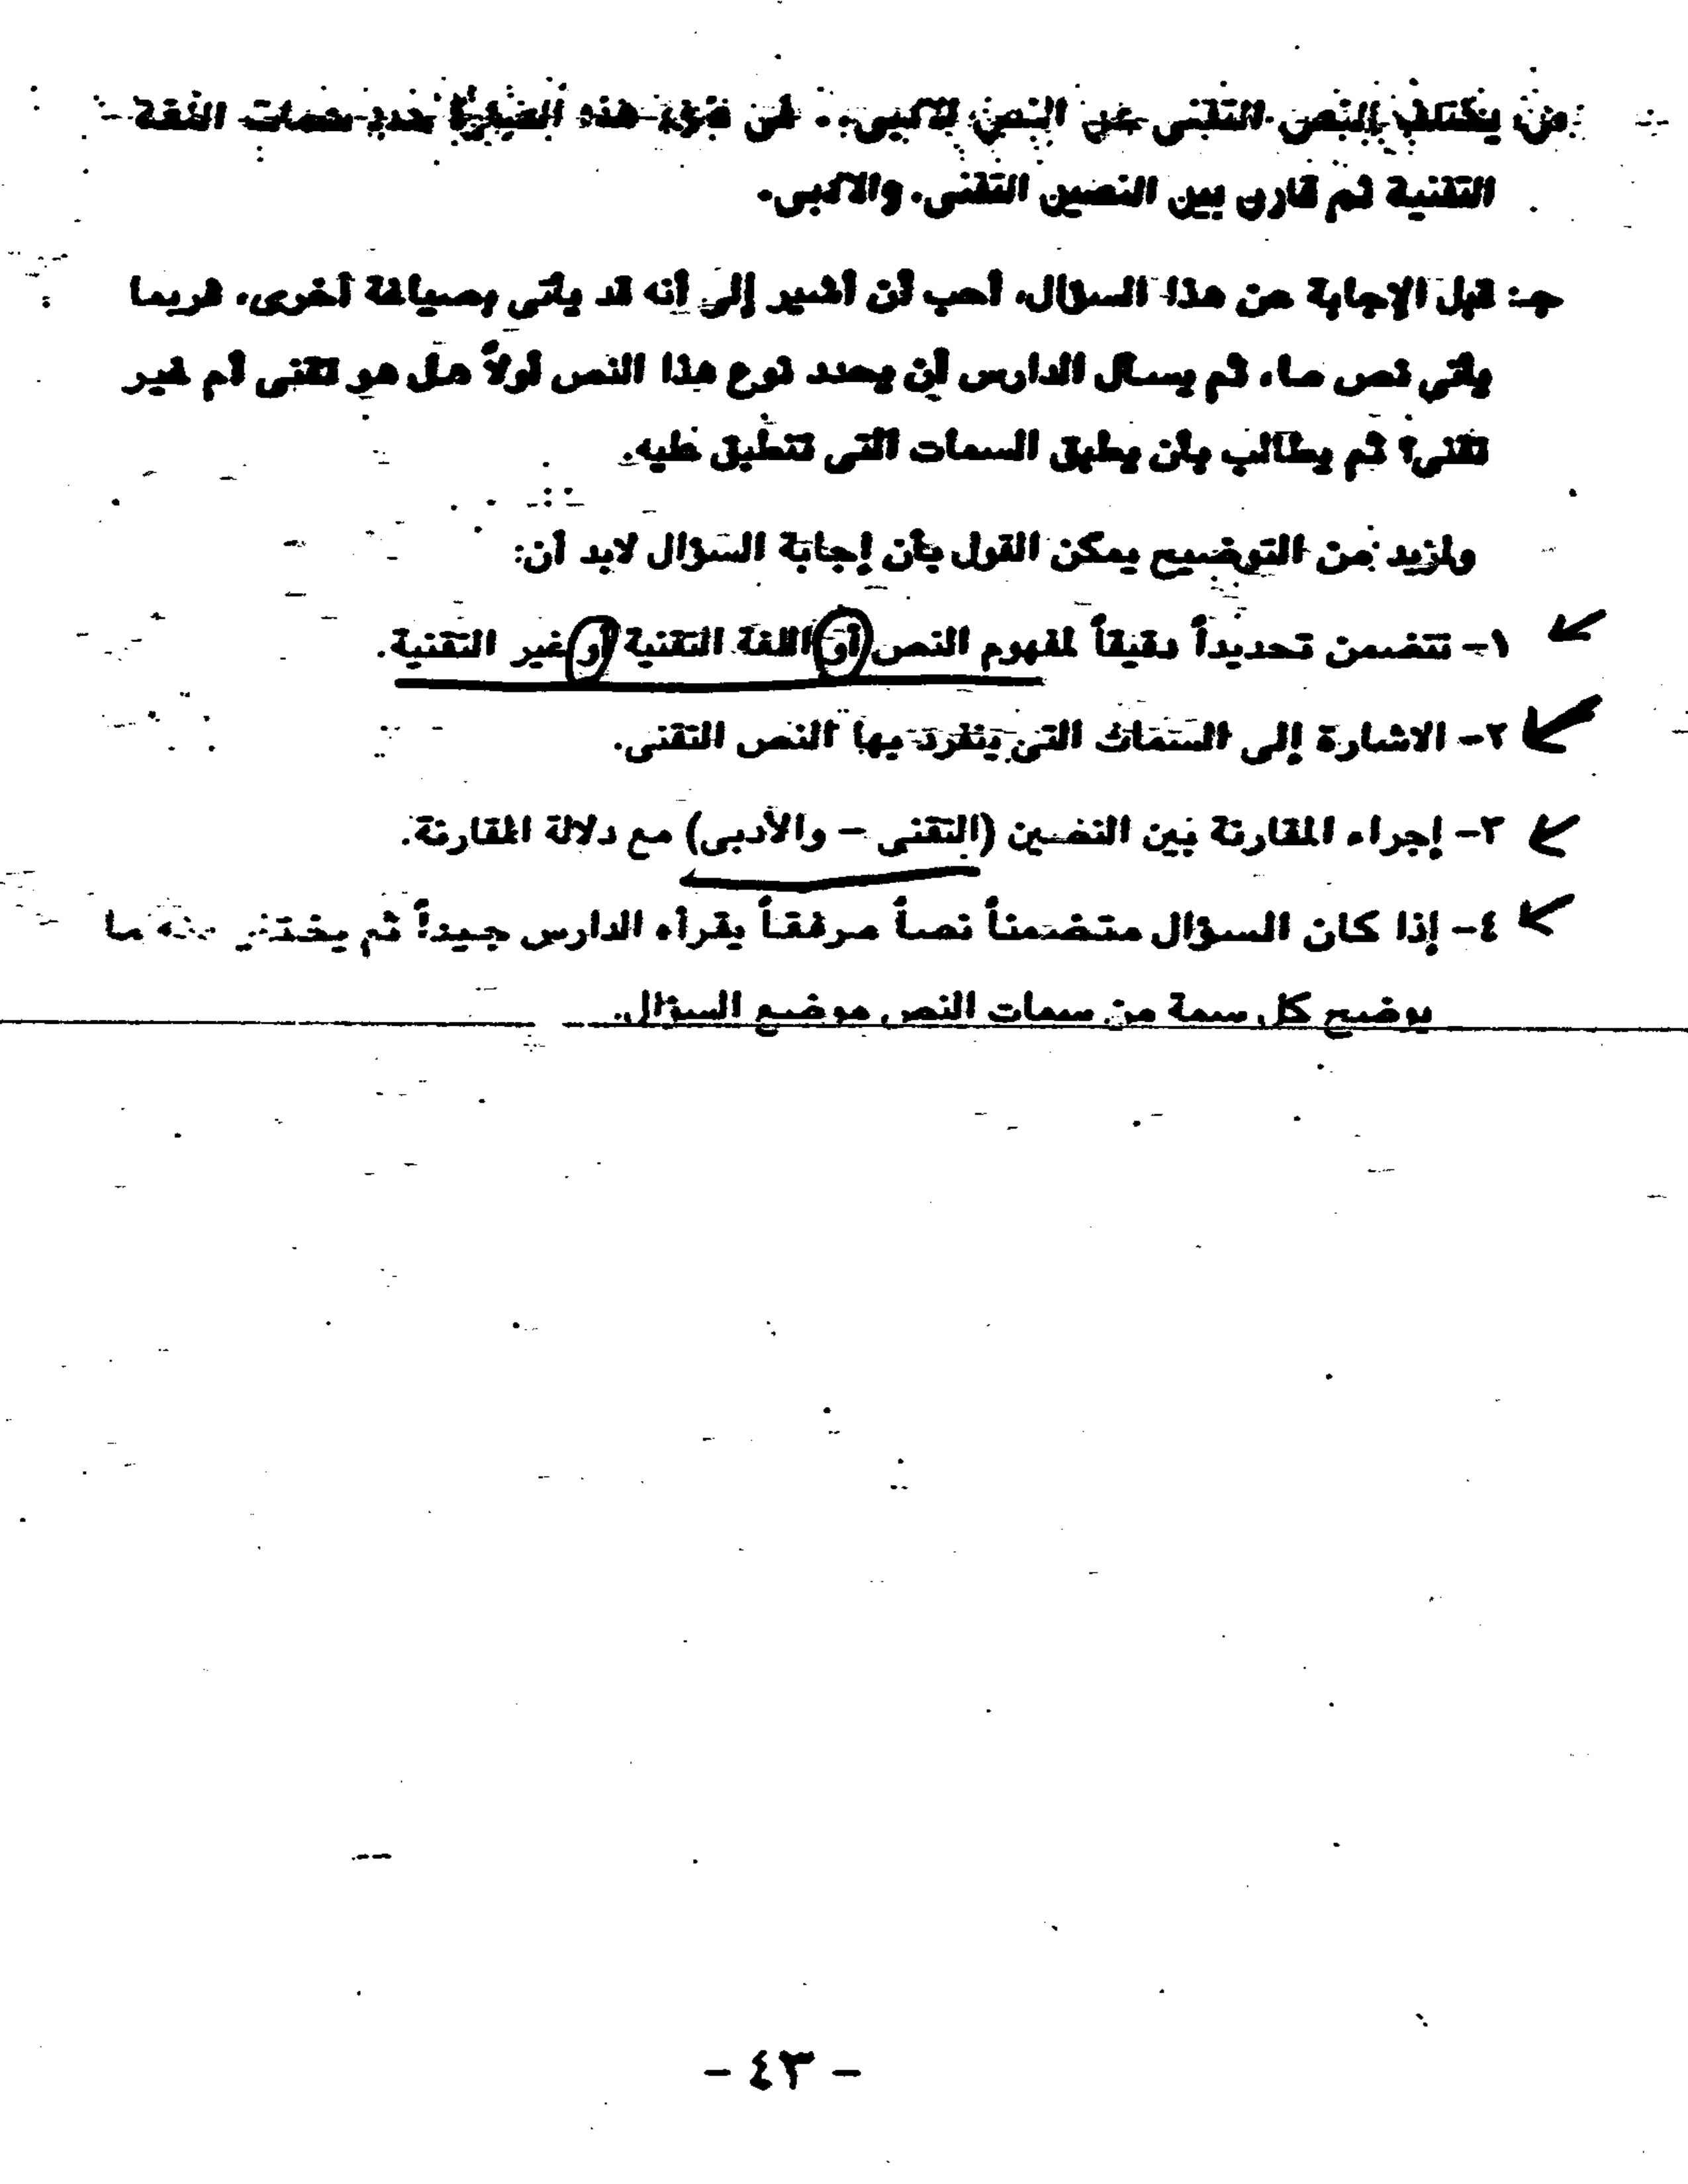 س: يختلف النص التقنى عن النص الأدبى.. فى ضوء هذه العبارة حدد سمات اللغة
التقنية ثم قارن بين النصين التقنى. والأدبى.
جـ: قبل الإجابة عن هذا السؤال، أحب أن أشير إلى أنه قد يأتى بصياغة أخرى، فربما
يأتى نص ما، ثم يسأل الدارس أن يحدد نوع هذا النص أولاً هل هو تقنى أم غير
تقنى؟ ثم يطالب بأن يطبق السمات التى تنطبق عليه.
ولمزيد من التوضيح يمكن القول بأن إجابة السؤال لابد أن:
١- تتضمن تحديداً دقيقاً لمفهوم النص أو اللغة التقنية أو غير التقنية.
٢- الاشارة إلى السمات التى ينفرد بها النص التقنى.
٣- إجراء المقارنة بين النصين (التقنى - والأدبى) مع دلالة المقارنة.
٤- إذا كان السؤال متضمناً نصاً مرفقاً يقرأه الدارس جيداً ثم يختار منه ما
يوضح كل سمة من سمات النص موضع السؤال.
- ٤٣ -